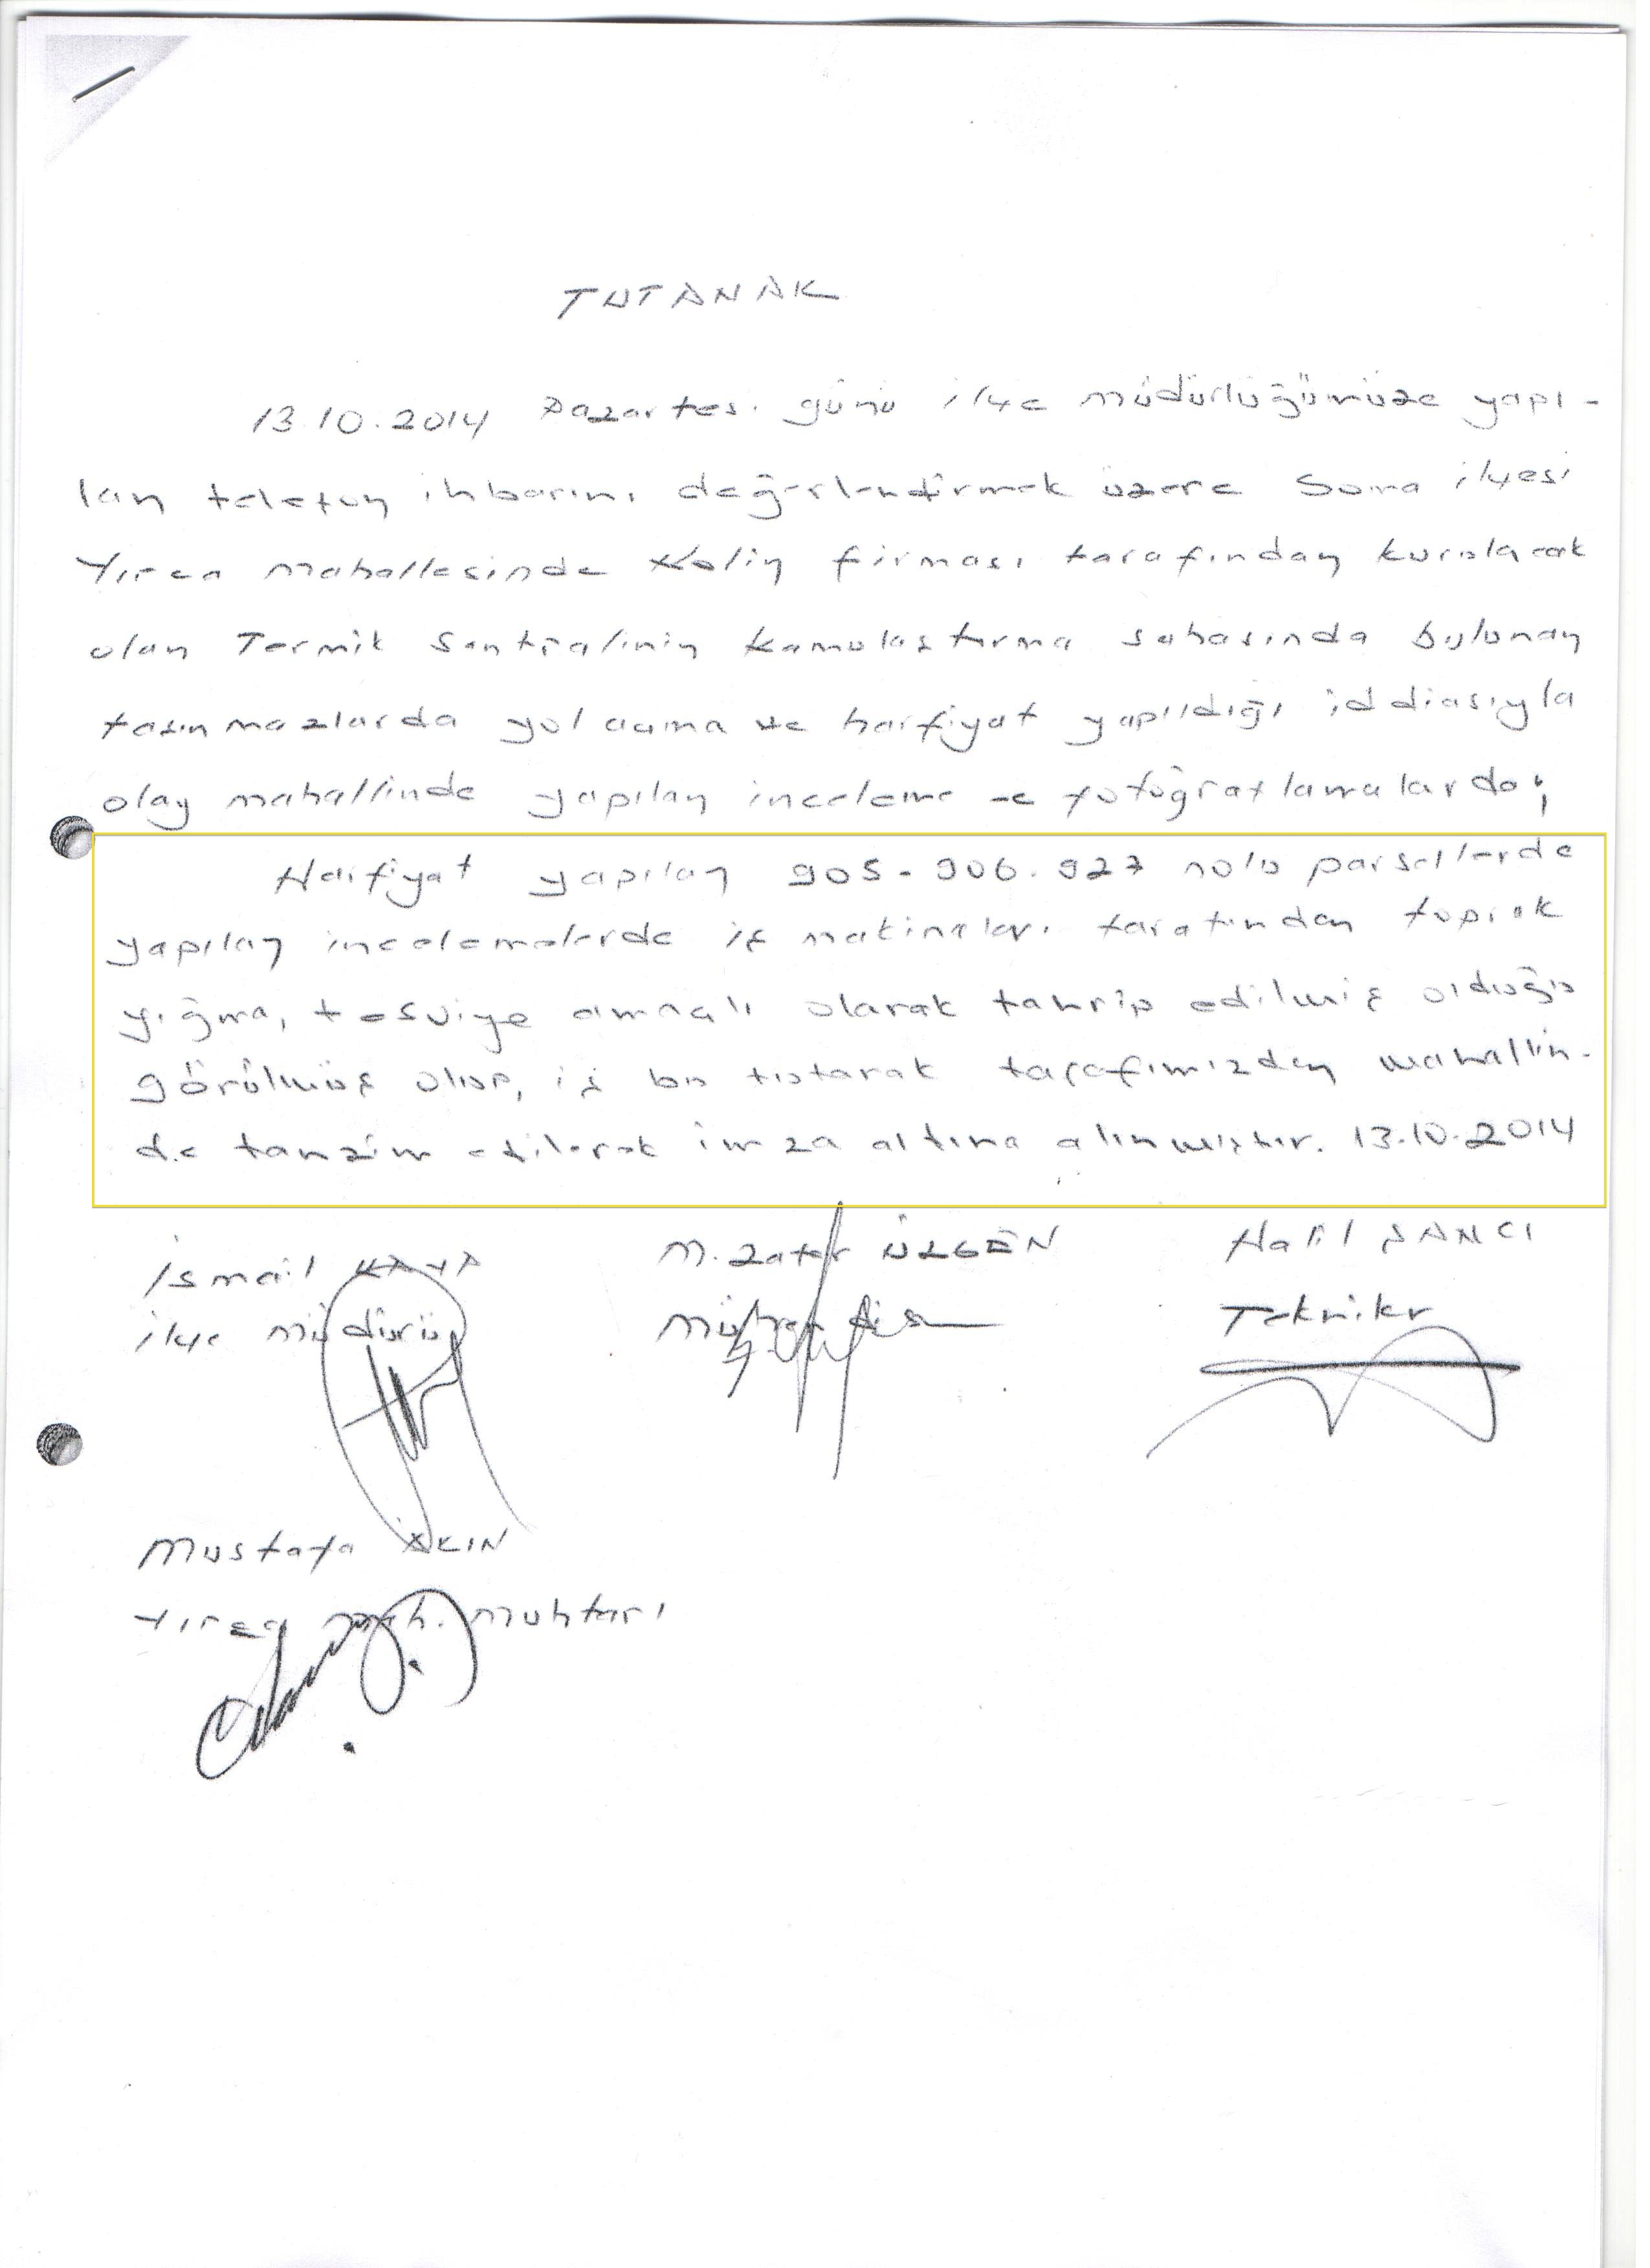 TUTANAK
13.10.2014 Pazartesi günü ilçe müdürlüğümüze yapı-
lan telefon ihbarını değerlendirmek üzere Soma ilçesi
Yırca mahallesinde Kolin firması tarafından kurulacak
olan Termik Santralinin kamulaştırma sahasında bulunan
taşınmazlarda yol açma ve harfiyat yapıldığı iddiasıyla
olay mahallinde yapılan inceleme ve fotoğraflamalarda;
Harfiyat yapılan 905-906.927 nolu parsellerde
yapılan incelemelerde iş makinaları tarafından toprak
yığma, tesviye amaçlı olarak tahrip edilmiş olduğu
görülmüş olup, iş bu tutanak tarafımızdan mahallin-
de tanzim edilerek imza altına alınmıştır. 13.10.2014
İsmail KAYA M. Zafer ÜZGEN Halil
ilçe müdürü Mühendis Tekniker
Mustafa AKIN
Yırca mah. muhtarı